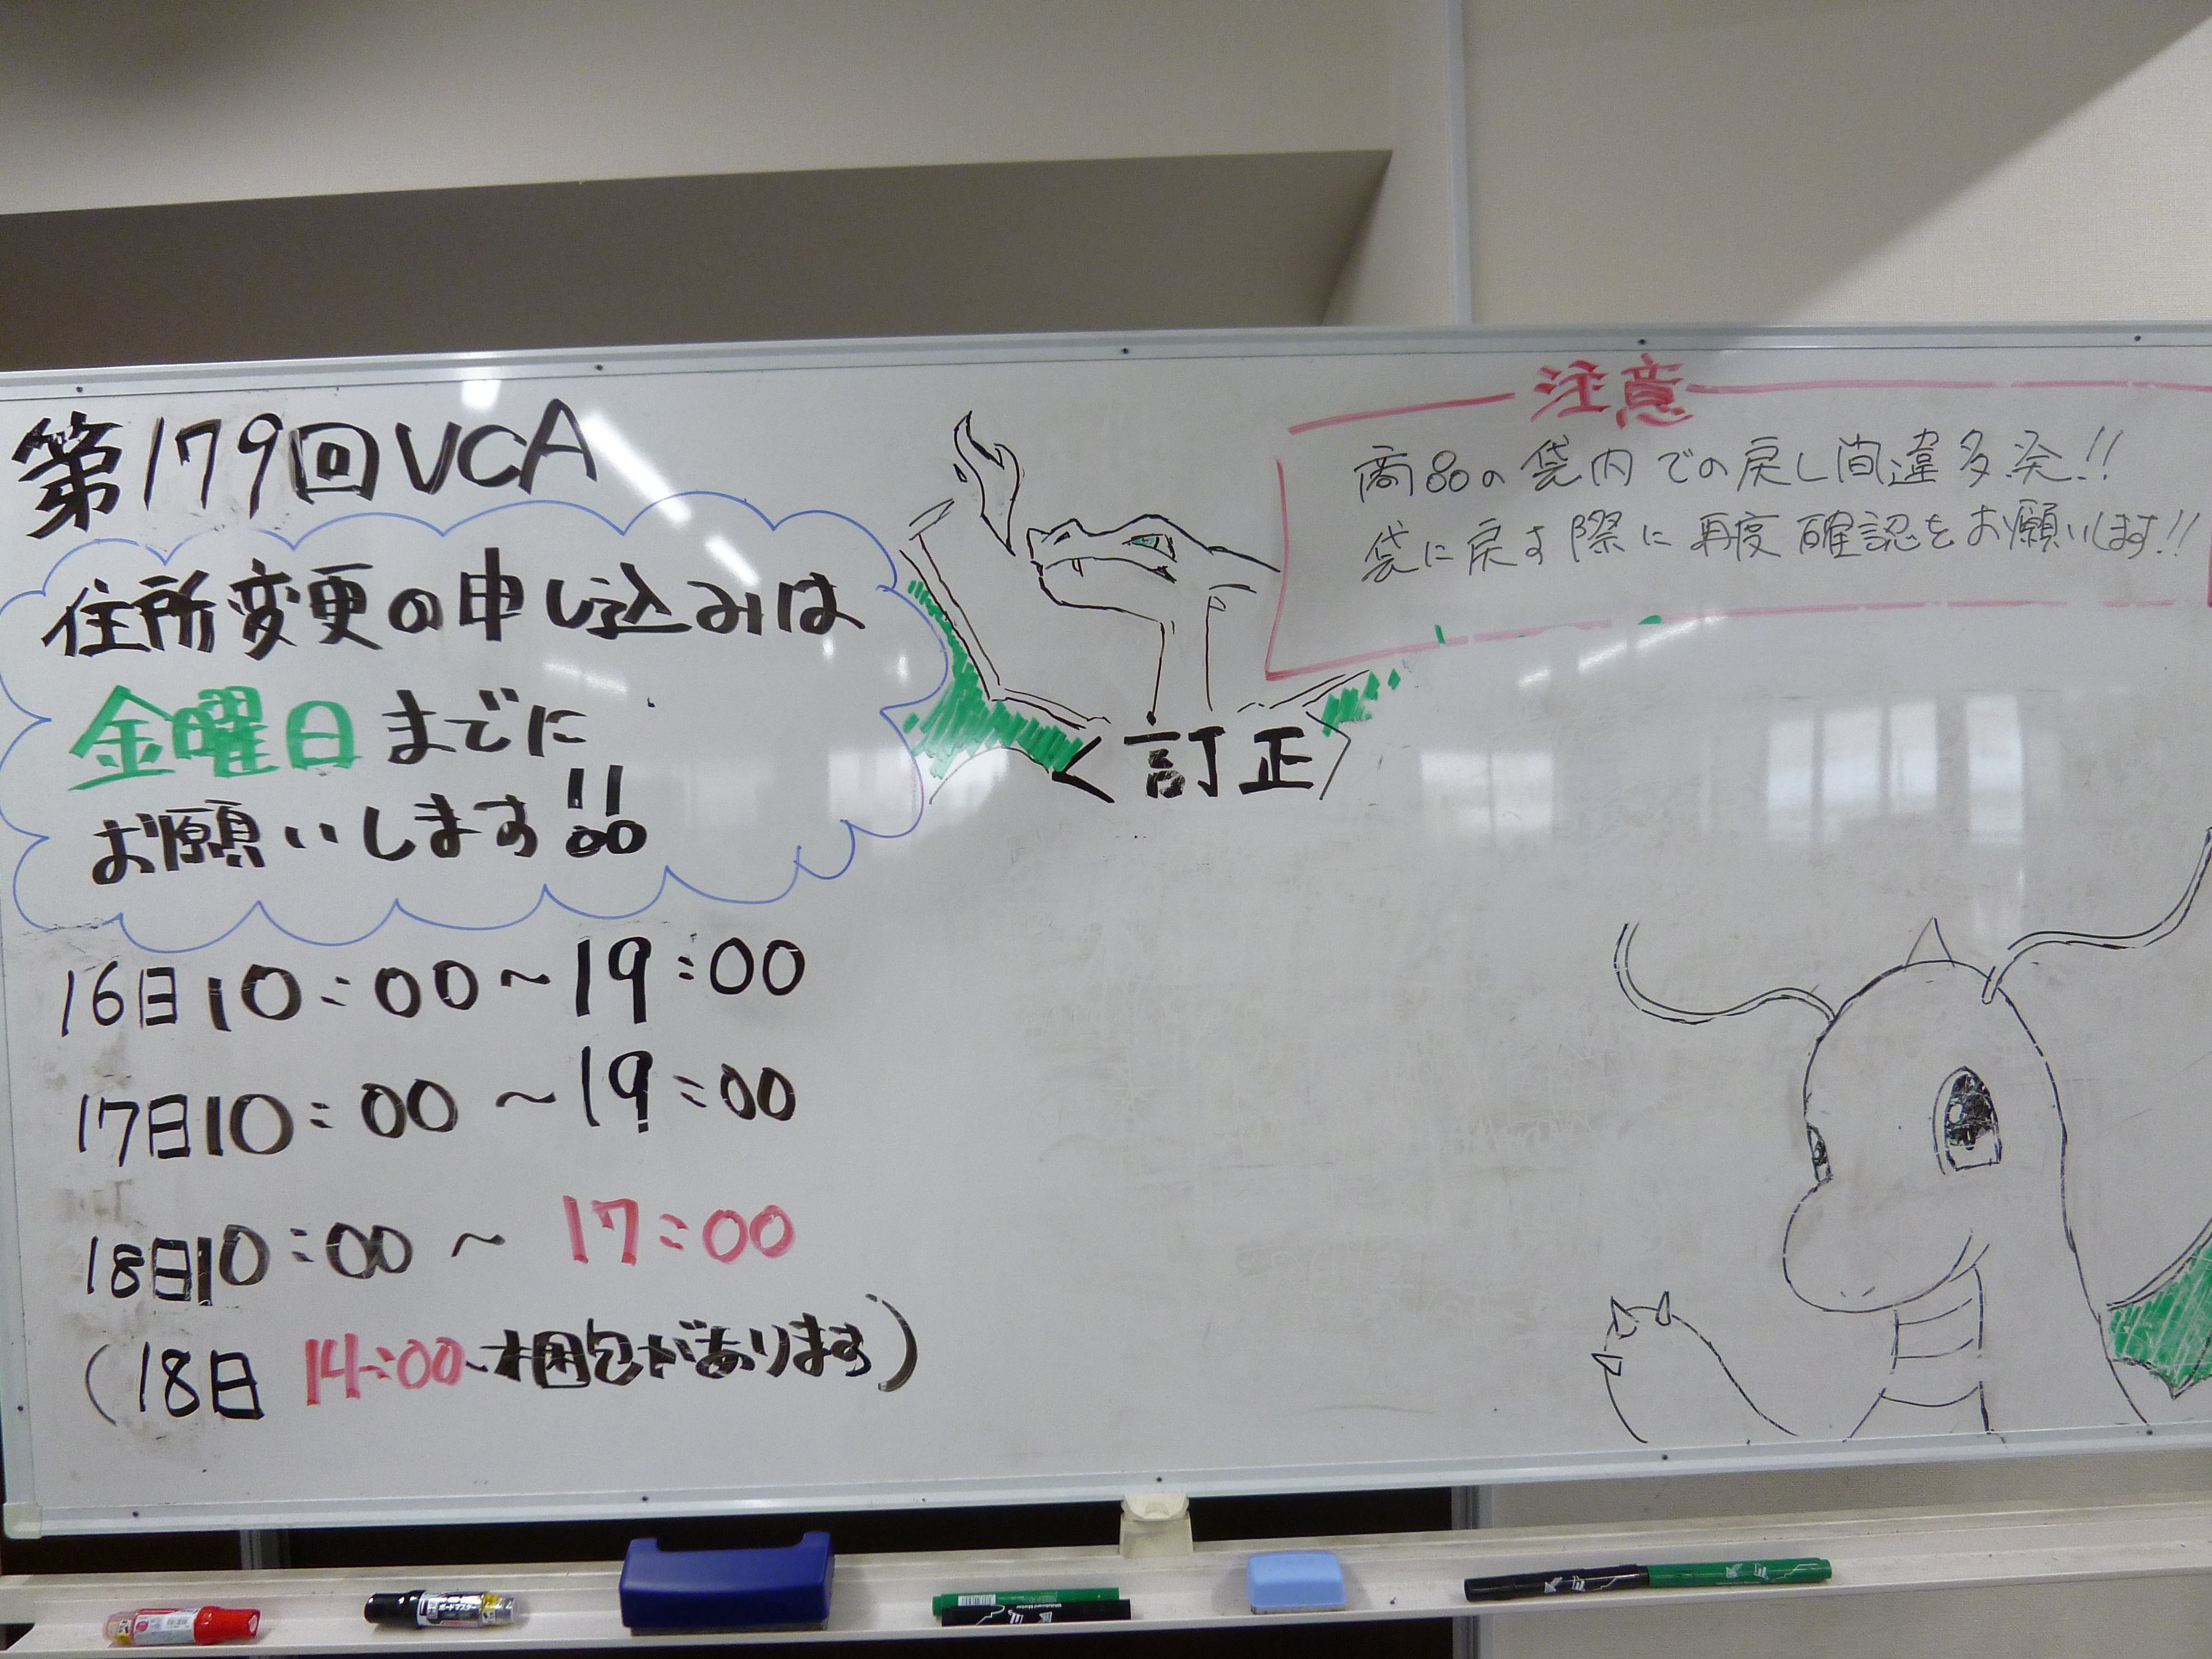 第179回VCA
住所変更の申し込みは
金曜日までに
お願いします!!
16日10:00~19:00
17日10:00~19:00
18日10:00~17:00
(18日 14:00~梱包があります)
<訂正>
注意
商品の袋内での戻し間違多発!!
袋に戻す際に再度確認をお願いします!!